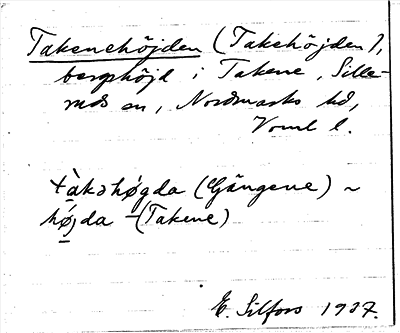 Takenehöjden (Takehöjden),
bergshöjd i Takene, Sille-
ruds sn, Nordmarks hd,
Vrml l.
tàkəhø̀gda (Gängene) ~
hǿjda - (Takene)
E. Silfors 1937.